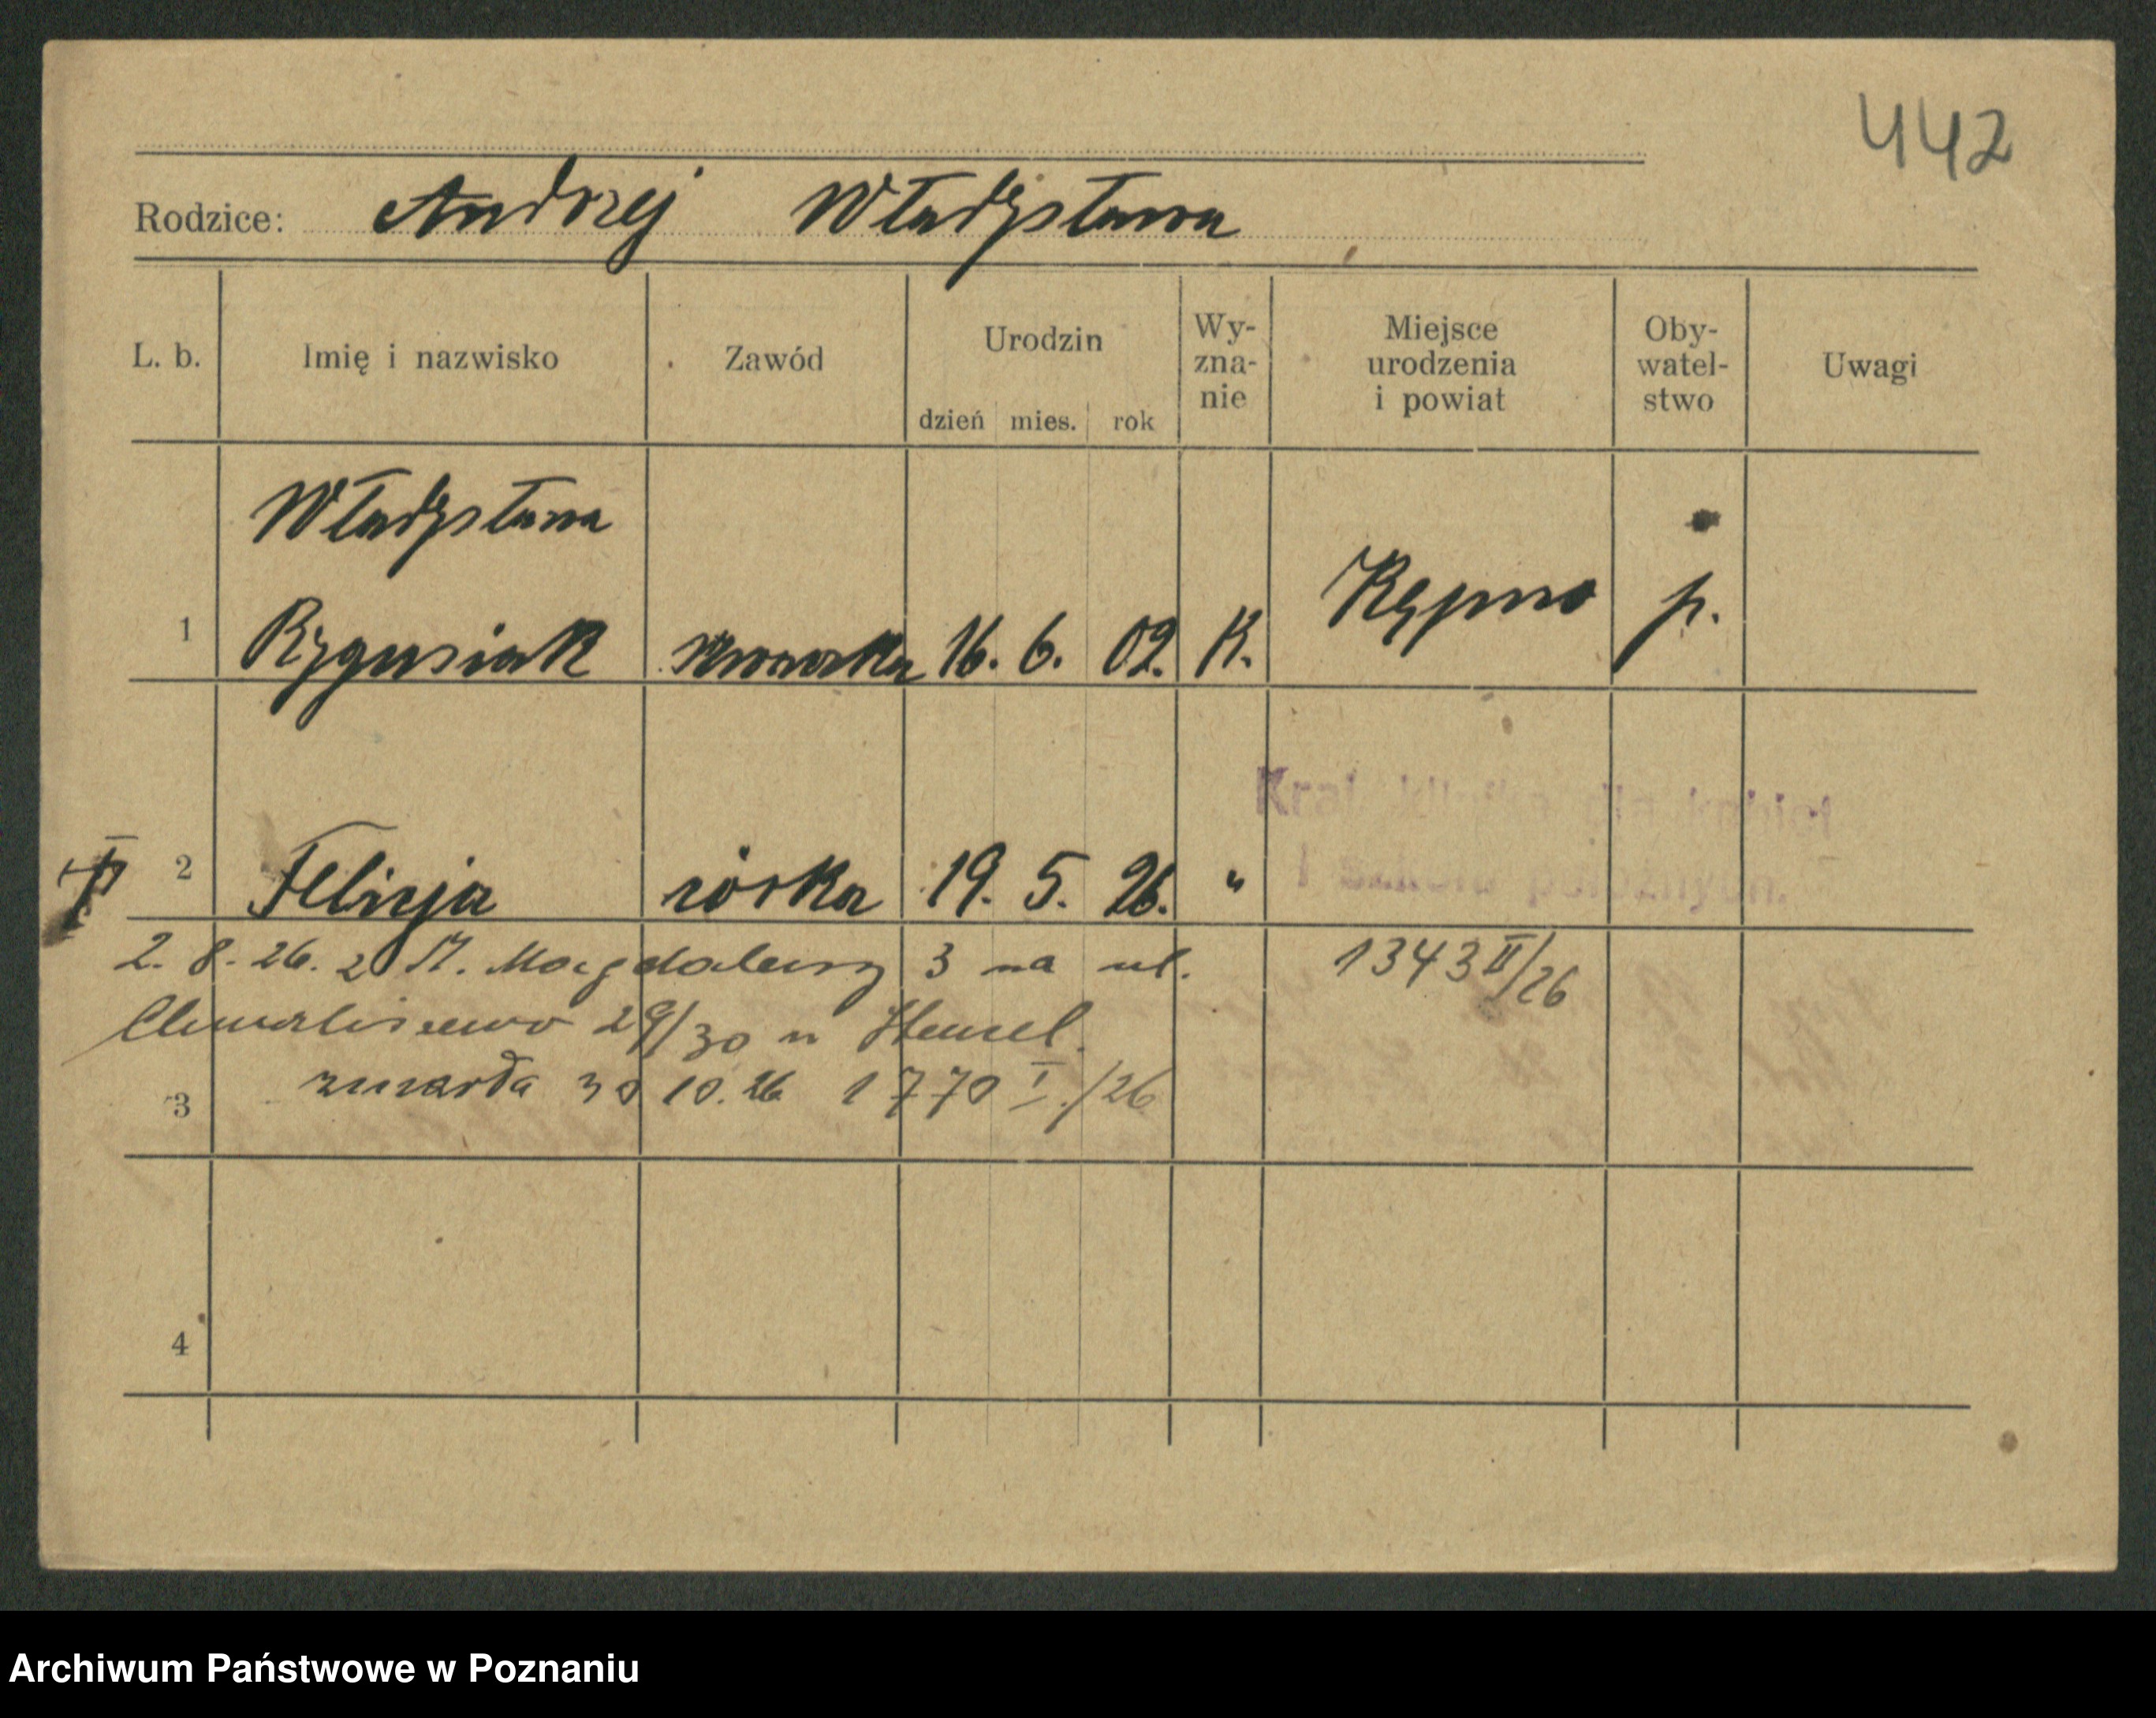 442
Rodzice: Andrzej Władysława
L. b. Imię i nazwisko Zawód Urodzin dzień mies. rok Wy-zna-nie Miejsce urodzenia i powiat Oby-watel-stwo Uwagi
Władysława
1 Rygusiak 16. 6. 02. K. Kępno p.
Kraj. klinika dla kobiet
2 Felicja córka 19. 5. 26. "
i szkoła położnych.
2. 8. 26. z M. Magdaleny 3 na ul. 1343 II/26
Chwaliszewo 29/30 u Hensel.
3 zmarła 30 10. 26 1770 I./26
4
Archiwum Państwowe w Poznaniu